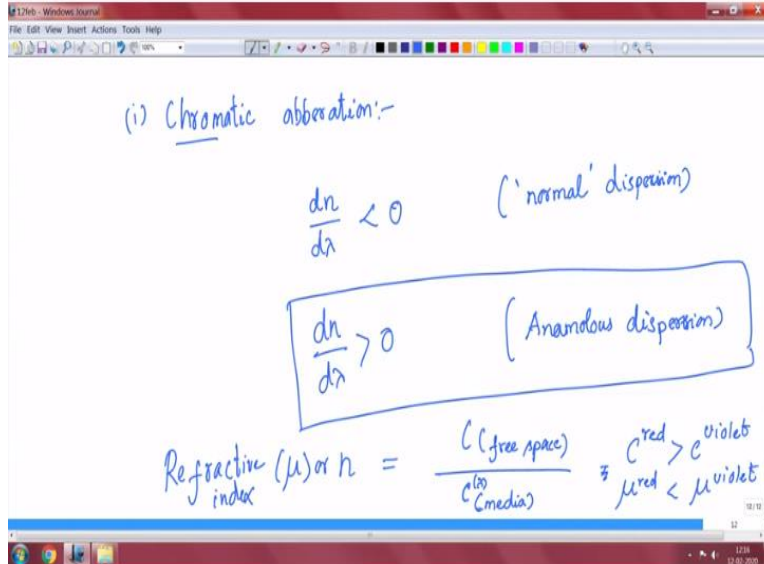 12feb - Windows Journal
File Edit View Insert Actions Tools Help
100%
(i) Chromatic abberation:-
dn/dλ < 0 ('normal' dispersion)
dn/dλ > 0 (Anamolous dispersion)
Refractive index (μ) or n = C(free space) / C(λ)(media) ; C^red > C^violet
μ^red < μ^violet
12/12
12
1216
12-02-2020